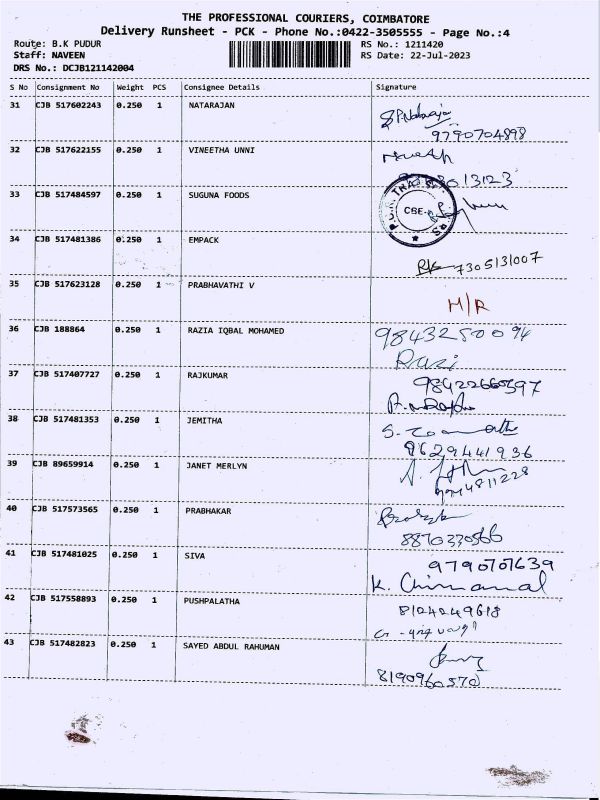 THE PROFESSIONAL COURIERS, COIMBATORE
Delivery Runsheet - PCK - Phone No.:0422-3505555 - Page No.:4
Route: B.K PUDUR RS No.: 1211420
Staff: NAVEEN RS Date: 22-Jul-2023
DRS No.: DCJB121142004
S No Consignment No Weight PCS Consignee Details Signature
31 CJB 517602243 0.250 1 NATARAJAN
9790704898
32 CJB 517622155 0.250 1 VINEETHA UNNI
13123
33 CJB 517484597 0.250 1 SUGUNA FOODS
CBE-
34 CJB 517481386 0.250 1 EMPACK
7305131007
35 CJB 517623128 0.250 1 PRABHAVATHI V
H/R
36 CJB 188864 0.250 1 RAZIA IQBAL MOHAMED
9843250094
Razi
37 CJB 517407727 0.250 1 RAJKUMAR
38 CJB 517481353 0.250 1 JEMITHA
9629441936
39 CJB 89659914 0.250 1 JANET MERLYN
40 CJB 517573565 0.250 1 PRABHAKAR
8870330566
41 CJB 517481025 0.250 1 SIVA
9790707639
K.
42 CJB 517558893 0.250 1 PUSHPALATHA
8124249618
43 CJB 517482823 0.250 1 SAYED ABDUL RAHUMAN
8190960570